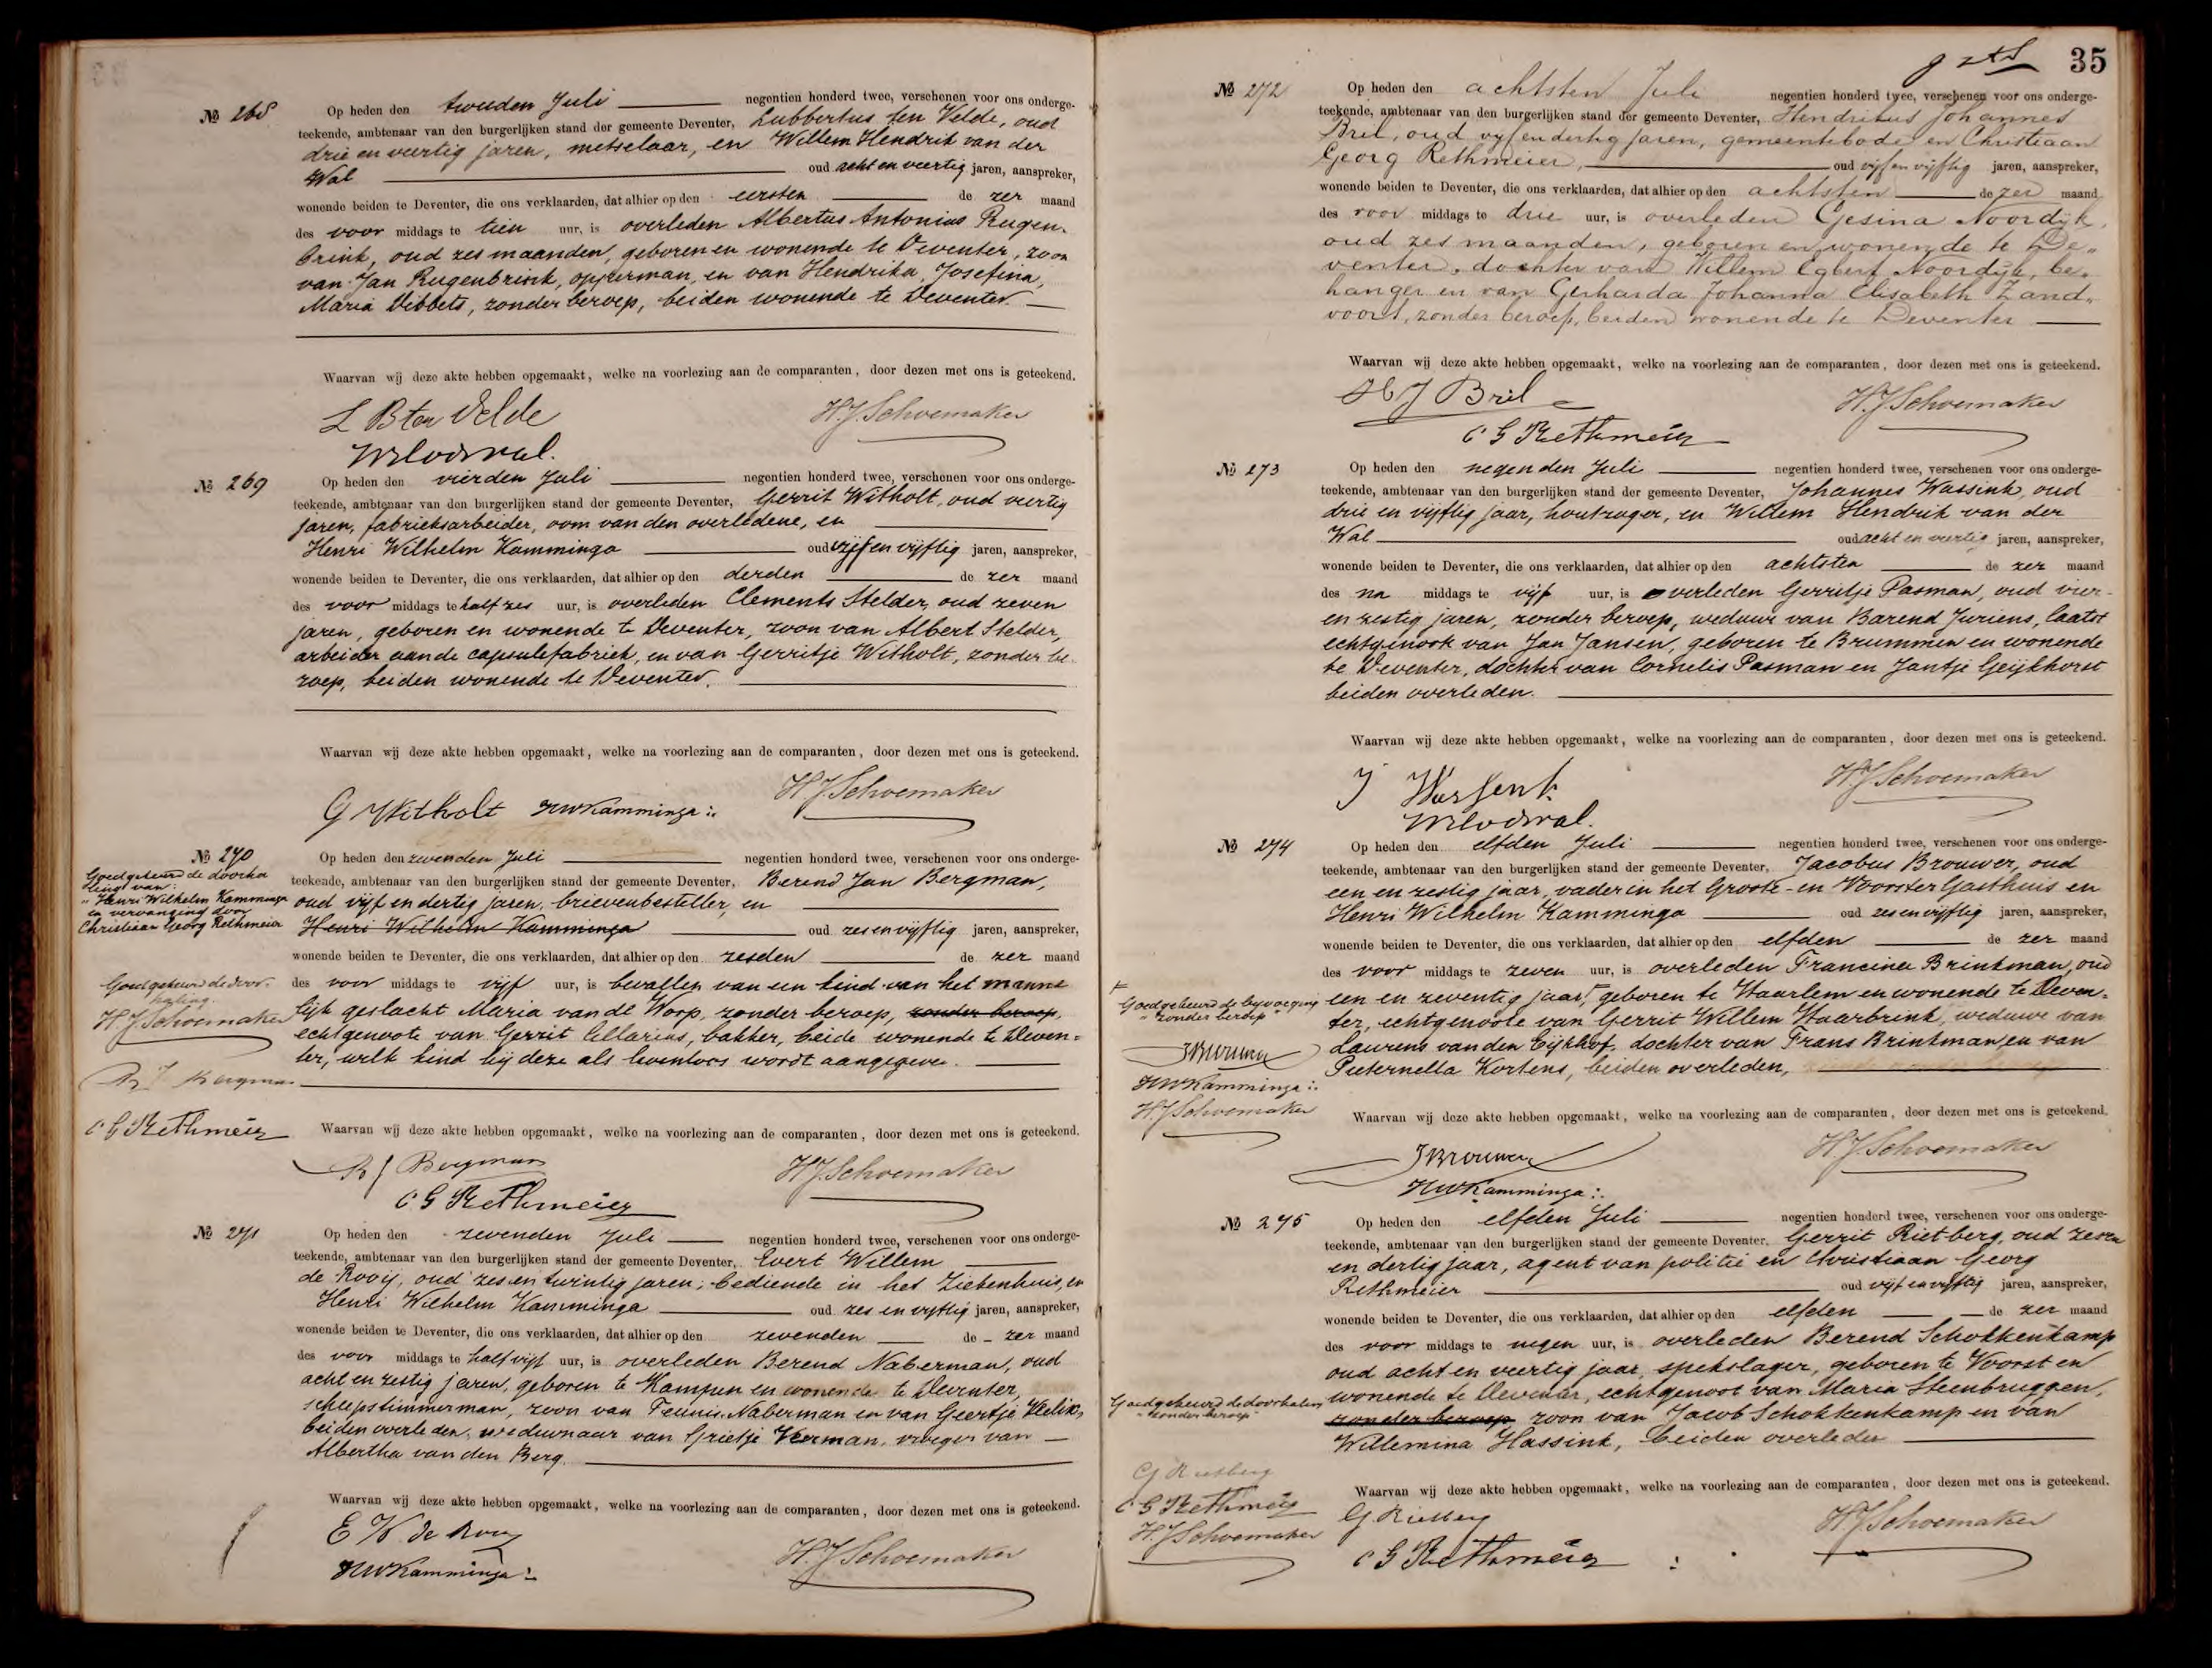 № 268
Op heden den tweeden Juli negentien honderd twee, verschenen voor ons onderge-
teekende, ambtenaar van den burgerlijken stand der gemeente Deventer, Lubbertus ten Velde, oud
drie en veertig jaren, metselaar, en Willem Hendrik van der
Wal oud acht en veertig jaren, aanspreker,
wonende beiden te Deventer, die ons verklaarden, dat alhier op den eersten de zer maand
des voor middags te tien uur, is overleden Albertus Antonius Rugen-
brink, oud zes maanden, geboren en wonende te Deventer, zoon
van Jan Rugenbrink, opperman, en van Hendrika, Josefina,
Maria Vibbets, zonder beroep, beiden wonende te Deventer
Waarvan wij deze akte hebben opgemaakt, welke na voorlezing aan de comparanten, door dezen met ons is geteekend.
L B ten Velde
H.J. Schoemaker
WHvdWal.
№ 269
Op heden den vierden Juli negentien honderd twee, verschenen voor ons onderge-
teekende, ambtenaar van den burgerlijken stand der gemeente Deventer, Gerrit Witholt, oud veertig
jaren, fabrieksarbeider, oom van den overledene, en
Henri Wilhelm Kamminga oud vijf en vijftig jaren, aanspreker,
wonende beiden te Deventer, die ons verklaarden, dat alhier op den derden de zer maand
des voor middags te half zes uur, is overleden Clements Stelder, oud zeven
jaren, geboren en wonende te Deventer, zoon van Albert Stelder,
arbeider aan de capsulefabriek, en van Gerritje Witholt, zonder be-
roep, beiden wonende te Deventer.
Waarvan wij deze akte hebben opgemaakt, welke na voorlezing aan de comparanten, door dezen met ons is geteekend.
H.J. Schoemaker
G Witholt HWKamminga
№ 270
Goedgekeurd de doorha
ling van:
"Henri Wilhelm Kamminga
en vervanging door
Christiaan Georg Rethmeier
Goedgekeurd de door-
haling.
H.J. Schoemaker
B J Bergman
C G Rethmeier
Op heden den zevenden Juli negentien honderd twee, verschenen voor ons onderge-
teekende, ambtenaar van den burgerlijken stand der gemeente Deventer, Berend Jan Bergman,
oud vijf en dertig jaren, brievenbesteller, en
Henri Wilhelm Kamminga oud zes en vijftig jaren, aanspreker,
wonende beiden te Deventer, die ons verklaarden, dat alhier op den zesden de zer maand
des voor middags te vijf uur, is bevallen van een kind van het manne
lijk geslacht Maria van de Worp, zonder beroep, zonder beroep,
echtgenoote van Gerrit Cellarius, bakker, beide wonende te Deven-
ter, welk kind bij deze als levenloos wordt aangegeve.
Waarvan wij deze akte hebben opgemaakt, welke na voorlezing aan de comparanten, door dezen met ons is geteekend.
B J Bergman
H.J. Schoemaker
C G Rethmeier
№ 271
Op heden den zevenden Juli negentien honderd twee, verschenen voor ons onderge-
teekende, ambtenaar van den burgerlijken stand der gemeente Deventer, Evert Willem
de Rooij, oud zes en twintig jaren, bediende in het Ziekenhuis, en
Henri Wilhelm Kamminga oud zes en vijftig jaren, aanspreker,
wonende beiden te Deventer, die ons verklaarden, dat alhier op den zevenden de zer maand
des voor middags te half vijf uur, is overleden Berend Naberman, oud
acht en zestig jaren, geboren te Kampen en wonende te Deventer,
scheepstimmerman, zoon van Teunis Naberman en van Geertje
beiden overleden, weduwnaar van Grietje Veerman, vroeger van
Albertha van den Berg.
Waarvan wij deze akte hebben opgemaakt, welke na voorlezing aan de comparanten, door dezen met ons is geteekend.
E W de Rooy
H.J. Schoemaker
HWKamminga
35
№ 272
Op heden den achtsten Juli negentien honderd twee, verschenen voor ons onderge-
teekende, ambtenaar van den burgerlijken stand der gemeente Deventer, Hendrikus Johannes
Bril, oud vijf en dertig jaren, gemeentebode en Christiaan
Georg Rethmeier, oud vijf en vijftig jaren, aanspreker,
wonende beiden te Deventer, die ons verklaarden, dat alhier op den achtsten de zer maand
des voor middags te drie uur, is overleden Gesina Noordijk,
oud zes maanden, geboren en wonende te De-
venter, dochter van Willem Egbert Noordijk, be-
hanger en van Gerharda Johanna Elisabeth Zand-
voort, zonder beroep, beiden wonende te Deventer
Waarvan wij deze akte hebben opgemaakt, welke na voorlezing aan de comparanten, door dezen met ons is geteekend.
H J Bril
H.J. Schoemaker
C G Rethmeier
№ 273
Op heden den negenden Juli negentien honderd twee, verschenen voor ons onderge-
teekende, ambtenaar van den burgerlijken stand der gemeente Deventer, Johannes Wassink, oud
drie en vijftig jaar, houtzager, en Willem Hendrik van der
Wal oud acht en veertig jaren, aanspreker,
wonende beiden te Deventer, die ons verklaarden, dat alhier op den achtsten de zer maand
des na middags te vijf uur, is overleden Gerritje Pasman, oud vier-
en zestig jaren, zonder beroep, weduwe van Barend Juriens, laatst
echtgenoot van Jan Jansen, geboren te Brummen en wonende
te Deventer, dochter van Cornelis Pasman en Jantje Geijkhorst
beiden overleden.
Waarvan wij deze akte hebben opgemaakt, welke na voorlezing aan de comparanten, door dezen met ons is geteekend.
J Wassink
H.J. Schoemaker
WHvdWal.
№ 274
Op heden den elfden Juli negentien honderd twee, verschenen voor ons onderge-
teekende, ambtenaar van den burgerlijken stand der gemeente Deventer, Jacobus Brouwer, oud
een en zestig jaar, vader in het Groote- en Voorster Gasthuis en
Henri Wilhelm Kamminga oud zes en vijftig jaren, aanspreker,
wonende beiden te Deventer, die ons verklaarden, dat alhier op den elfden de zer maand
des voor middags te zeven uur, is overleden Francina Brinkman, oud
een en zeventig jaar, geboren te Haarlem en wonende te Deven-
ter, echtgenoote van Gerrit Willem Haarbrink, weduwe van
Laurens van den Eijkhof, dochter van Frans Brinkman, en van
Pieternella Kortens, beiden overleden,
Goedgekeurd de bijvoeging
"zonder beroep"
JBrouwer
HWKamminga
H.J. Schoemaker
Waarvan wij deze akte hebben opgemaakt, welke na voorlezing aan de comparanten, door dezen met ons is geteekend.
JBrouwer
H.J. Schoemaker
HWKamminga
№ 275
Op heden den elfden Juli negentien honderd twee, verschenen voor ons onderge-
teekende, ambtenaar van den burgerlijken stand der gemeente Deventer, Gerrit Rietberg, oud zeven
en dertig jaar, agent van politie en Christiaan Georg
Rethmeier oud vijf en vijftig jaren, aanspreker,
wonende beiden te Deventer, die ons verklaarden, dat alhier op den elfden de zer maand
des voor middags te negen uur, is overleden Berend Schokkenkamp
oud acht en veertig jaar, spekslager, geboren te Voorst en
wonende te Deventer, echtgenoot van Maria Steenbruggen,
zonder beroep zoon van Jacob Schokkenkamp en van
Willemina Hassink, beiden overleden
Goedgekeurd de doorhalen
"zonder beroep"
G Rietberg
C G Rethmeier
H.J. Schoemaker
Waarvan wij deze akte hebben opgemaakt, welke na voorlezing aan de comparanten, door dezen met ons is geteekend.
G Rietberg
H.J. Schoemaker
C G Rethmeier